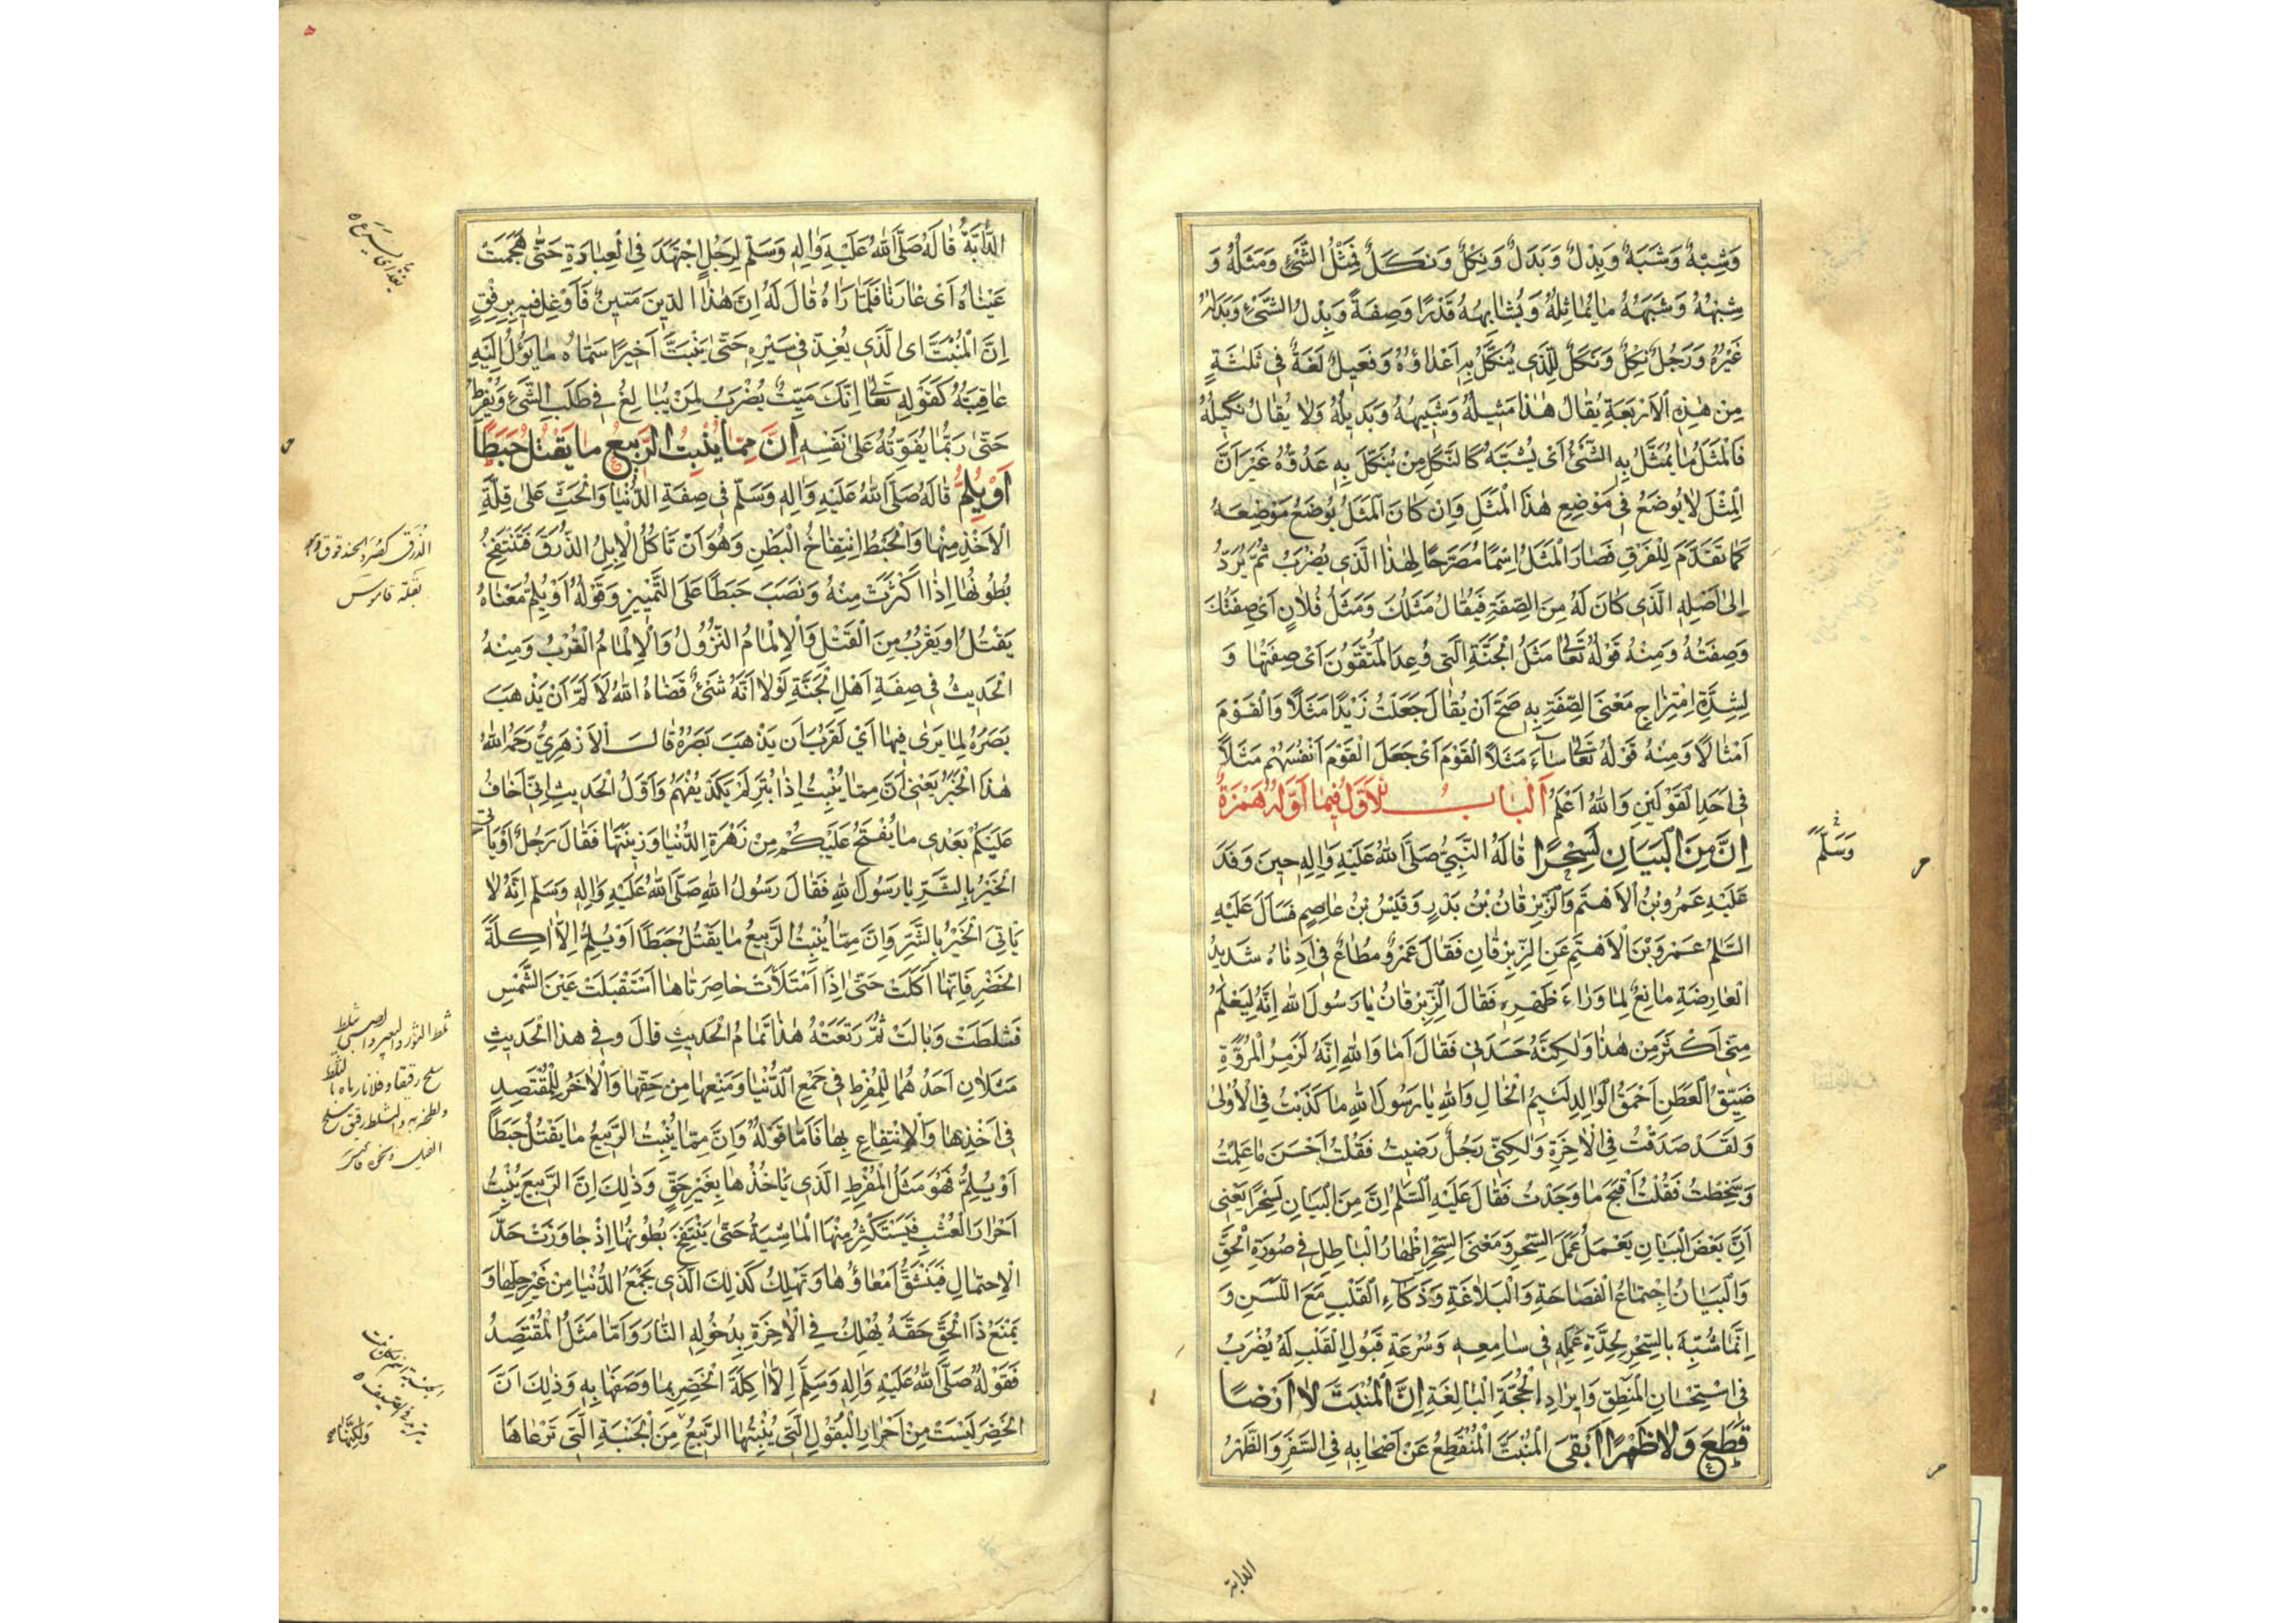 وَشِبْهٌ وَشَبَهٌ وَبِدْلٌ وَبَدَلٌ وَنِكْلٌ وَنَكَلٌ فَمِثْلُ الشَّیْءِ وَمَثَلُهُ وَ
شِبْهُهُ وَشَبَهُهُ مَا يُمَاثِلُهُ وَيُشَابِهُهُ قَدْرًا وَصِفَةً وَبِدْلُ الشَّیْءِ وَبَدَلُهُ
غَيْرُهُ وَرَجُلٌ نِكْلٌ وَنَكَلٌ لِلَّذِی يُنَكَّلُ بِهِ اَعْدَاؤُهُ وَفَعِيلٌ لُغَةٌ فِی ثَلٰثَةٍ
مِنْ هٰذِهِ الْاَرْبَعَةِ يُقَالُ هٰذَا مَثِيلُهُ وَشَبِيهُهُ وَبَدِيلُهُ وَلَا يُقَالُ نَكِيلُهُ
فَالْمَثَلُ مَا يُمَثَّلُ بِهِ الشَّیْءُ اَیْ يُشَبَّهُ كَالنَّكَلِ مَنْ يُنَكَّلُ بِهِ عَدُوُّهُ غَيْرَ اَنَّ
الْمِثْلَ لَا يُوضَعُ فِی مَوْضِعِ هٰذَا الْمَثَلِ وَاِنْ كَانَ الْمَثَلُ يُوضَعُ مَوْضِعَهُ
كَمَا تَقَدَّمَ لِلْفَرْقِ فَصَارَ الْمَثَلُ اِسْمًا مُصَرَّحًا لِهٰذَا الَّذِی يُضْرَبُ ثُمَّ يُرَدُّ
اِلٰی اَصْلِهِ الَّذِی كَانَ لَهُ مِنَ الصِّفَةِ فَيُقَالُ مَثَلُكَ وَمَثَلُ فُلَانٍ اَیْ صِفَتُكَ
وَصِفَتُهُ وَمِنْهُ قَوْلُهُ تَعَالٰی مَثَلُ الْجَنَّةِ الَّتِی وُعِدَ الْمُتَّقُونَ اَیْ صِفَتُهَا وَ
لِشِدَّةِ امْتِزَاجِ مَعْنَی الصِّفَةِ بِهِ صَحَّ اَنْ يُقَالَ جَعَلْتُ زَيْدًا مَثَلًا وَالْقَوْمَ
اَمْثَالًا وَمِنْهُ قَوْلُهُ تَعَالٰی سَآءَ مَثَلًا الْقَوْمُ اَیْ جَعَلَ الْقَوْمَ اَنْفُسَهُمْ مَثَلًا
فِی اَحَدِ الْقَوْلَيْنِ وَاللّٰهُ اَعْلَمُ اَلْبَابُ الْاَوَّلُ فِيمَا اَوَّلُهُ هَمْزَةٌ
اِنَّ مِنَ الْبَيَانِ لَسِحْرًا قَالَهُ النَّبِیُّ صَلَّی اللّٰهُ عَلَيْهِ وَاٰلِهِ حِينَ وَفَدَ
وَسَلَّمَ
عَلَيْهِ عَمْرُو بْنُ الْاَهْتَمِ وَالزِّبْرِقَانُ بْنُ بَدْرٍ وَقَيْسُ بْنُ عَاصِمٍ فَسَاَلَ عَلَيْهِ
السَّلٰمُ عَمْرَو بْنَ الْاَهْتَمِ عَنِ الزِّبْرِقَانِ فَقَالَ عَمْرٌو مُطَاعٌ فِی اَدْنَاهُ شَدِيدُ
الْعَارِضَةِ مَانِعٌ لِمَا وَرَاءَ ظَهْرِهِ فَقَالَ الزِّبْرِقَانُ يَا رَسُولَ اللّٰهِ اِنَّهُ لَيَعْلَمُ
مِنِّی اَكْثَرَ مِنْ هٰذَا وَلٰكِنَّهُ حَسَدَنِی فَقَالَ اَمَا وَاللّٰهِ اِنَّهُ لَزَمِرُ الْمُرُوَّةِ
ضَيِّقُ الْعَطَنِ اَحْمَقُ الْوَالِدِ لَئِيمُ الْخَالِ وَاللّٰهِ يَا رَسُولَ اللّٰهِ مَا كَذَبْتُ فِی الْاُولٰی
وَلَقَدْ صَدَقْتُ فِی الْاٰخِرَةِ وَلٰكِنِّی رَجُلٌ رَضِيتُ فَقُلْتُ اَحْسَنَ مَا عَلِمْتُ
وَسَخِطْتُ فَقُلْتُ اَقْبَحَ مَا وَجَدْتُ فَقَالَ عَلَيْهِ السَّلٰمُ اِنَّ مِنَ الْبَيَانِ لَسِحْرًا يَعْنِی
اَنَّ بَعْضَ الْبَيَانِ يَعْمَلُ عَمَلَ السِّحْرِ وَمَعْنَی السِّحْرِ اِظْهَارُ الْبَاطِلِ فِی صُورَةِ الْحَقِّ
وَالْبَيَانُ اجْتِمَاعُ الْفَصَاحَةِ وَالْبَلَاغَةِ وَذَكَآءِ الْقَلْبِ مَعَ اللَّسَنِ وَ
اِنَّمَا شُبِّهَ بِالسِّحْرِ لِحِدَّةِ عَمَلِهِ فِی سَامِعِهِ وَسُرْعَةِ قَبُولِ الْقَلْبِ لَهُ يُضْرَبُ
فِی اسْتِحْسَانِ الْمَنْطِقِ وَاِيرَادِ الْحُجَّةِ الْبَالِغَةِ اِنَّ الْمُنْبَتَّ لَا اَرْضًا
قَطَعَ وَلَا ظَهْرًا اَبْقَی الْمُنْبَتُّ الْمُنْقَطِعُ عَنْ اَصْحَابِهِ فِی السَّفَرِ وَالظَّهْرُ
الدابة
الدَّابَّةُ قَالَهُ صَلَّی اللّٰهُ عَلَيْهِ وَاٰلِهِ وَسَلَّمَ لِرَجُلٍ اجْتَهَدَ فِی الْعِبَادَةِ حَتّٰی هَجَمَتْ
عَيْنَاهُ اَیْ غَارَتَا فَلَمَّا رَاٰهُ قَالَ لَهُ اِنَّ هٰذَا الدِّينَ مَتِينٌ فَاَوْغِلْ فِيهِ بِرِفْقٍ
اِنَّ الْمُنْبَتَّ ای الَّذِی يُغِذُّ فِی سَيْرِهِ حَتّٰی يَنْبَتَّ اَخِيرًا سَمَّاهُ مَا يَؤُلُ اِلَيْهِ
عَاقِبَتُهُ كَقَوْلِهِ تَعَالٰی اِنَّكَ مَيِّتٌ يُضْرَبُ لِمَنْ يُبَالِغُ فِی طَلَبِ الشَّیْءِ وَيُفْرِطُ
حَتّٰی رُبَّمَا يُفَوِّتُهُ عَلٰی نَفْسِهِ اِنَّ مِمَّا يُنْبِتُ الرَّبِيعُ مَا يَقْتُلُ حَبَطًا
اَوْ يُلِمُّ قَالَهُ صَلَّی اللّٰهُ عَلَيْهِ وَاٰلِهِ وَسَلَّمَ فِی صِفَةِ الدُّنْيَا وَالْحَثِّ عَلٰی قِلَّةِ
الْاَخْذِ مِنْهَا وَالْحَبَطُ انْتِفَاخُ الْبَطْنِ وَهُوَ اَنْ تَاْكُلَ الْاِبِلُ الذُّرَقَ فَتَنْتَفِخُ
بُطُونُهَا اِذَا اَكْثَرَتْ مِنْهُ وَنَصَبَ حَبَطًا عَلَی التَّمْيِيزِ وَقَوْلُهُ اَوْ يُلِمُّ مَعْنَاهُ
يَقْتُلُ اَوْ يَقْرُبُ مِنَ الْقَتْلِ وَالْاِلْمَامُ النُّزُولُ وَالْاِلْمَامُ الْقُرْبُ وَمِنْهُ
الْحَدِيثُ فِی صِفَةِ اَهْلِ الْجَنَّةِ لَوْلَا اَنَّهُ شَیْءٌ قَضَاهُ اللّٰهُ لَاَلَمَّ اَنْ يَذْهَبَ
بَصَرُهُ لِمَا يَرٰی فِيهَا اَیْ لَقَرُبَ اَنْ يَذْهَبَ بَصَرُهُ قَالَ الْاَزْهَرِیُّ رَحِمَهُ اللّٰهُ
هٰذَا الْخَبَرُ يَعْنِی اَنَّ مِمَّا يُنْبِتُ اِذَا بُتِرَ لَمْ يَكَدْ يُفْهَمُ وَاَوَّلُ الْحَدِيثِ اِنِّی اَخَافُ
عَلَيْكُمْ بَعْدِی مَا يُفْتَحُ عَلَيْكُمْ مِنْ زَهْرَةِ الدُّنْيَا وَزِينَتِهَا فَقَالَ رَجُلٌ اَوَ يَاْتِی
الْخَيْرُ بِالشَّرِّ يَا رَسُولَ اللّٰهِ فَقَالَ رَسُولُ اللّٰهِ صَلَّی اللّٰهُ عَلَيْهِ وَاٰلِهِ وَسَلَّمَ اِنَّهُ لَا
يَاْتِی الْخَيْرُ بِالشَّرِّ وَاِنَّ مِمَّا يُنْبِتُ الرَّبِيعُ مَا يَقْتُلُ حَبَطًا اَوْ يُلِمُّ اِلَّا اٰكِلَةَ
الْخَضِرِ فَاِنَّهَا اَكَلَتْ حَتّٰی اِذَا امْتَلَاَتْ خَاصِرَتَاهَا اسْتَقْبَلَتْ عَيْنَ الشَّمْسِ
فَثَلَطَتْ وَبَالَتْ ثُمَّ رَتَعَتْ هٰذَا تَمَامُ الْحَدِيثِ قَالَ وَفِی هٰذَا الْحَدِيثِ
مَثَلَانِ اَحَدُهُمَا لِلْمُفْرِطِ فِی جَمْعِ الدُّنْيَا وَمَنْعِهَا مِنْ حَقِّهَا وَالْاٰخَرُ لِلْمُقْتَصِدِ
فِی اَخْذِهَا وَالْاِنْتِفَاعِ بِهَا فَاَمَّا قَوْلُهُ وَاِنَّ مِمَّا يُنْبِتُ الرَّبِيعُ مَا يَقْتُلُ حَبَطًا
اَوْ يُلِمُّ فَهُوَ مَثَلُ الْمُفْرِطِ الَّذِی يَاْخُذُهَا بِغَيْرِ حَقٍّ وَذٰلِكَ اِنَّ الرَّبِيعَ يُنْبِتُ
اَحْرَارَ الْعُشْبِ فَيَسْتَكْثِرُ مِنْهَا الْمَاشِيَةُ حَتّٰی يَنْتَفِخَ بُطُونُهَا اِذْ جَاوَزَتْ حَدَّ
الْاِحْتِمَالِ فَيَنْشَقُّ اَمْعَاؤُهَا وَتَهْلِكُ كَذٰلِكَ الَّذِی يَجْمَعُ الدُّنْيَا مِنْ غَيْرِ حِلِّهَا وَ
يَمْنَعُ ذَا الْحَقِّ حَقَّهُ يُهْلِكُ فِی الْاٰخِرَةِ بِدُخُولِهِ النَّارَ وَاَمَّا مَثَلُ الْمُقْتَصِدُ
فَقَوْلُهُ صَلَّی اللّٰهُ عَلَيْهِ وَاٰلِهِ وَسَلَّمَ اِلَّا اٰكِلَةَ الْخَضِرِ بِمَا وَصَفَهَا بِهِ وَذٰلِكَ اَنَّ
الْخَضِرَ لَيْسَتْ مِنْ اَحْرَارِ الْبُقُولِ الَّتِی يُنْبِتُهَا الرَّبِيعُ مِنَ الْجَنْبَةِ الَّتِی تَرْعَاهَا
يغذ ای يسرع
الذرق كصرد الحندقوق
بقلة قاموس
وَلٰكِنَّهَا